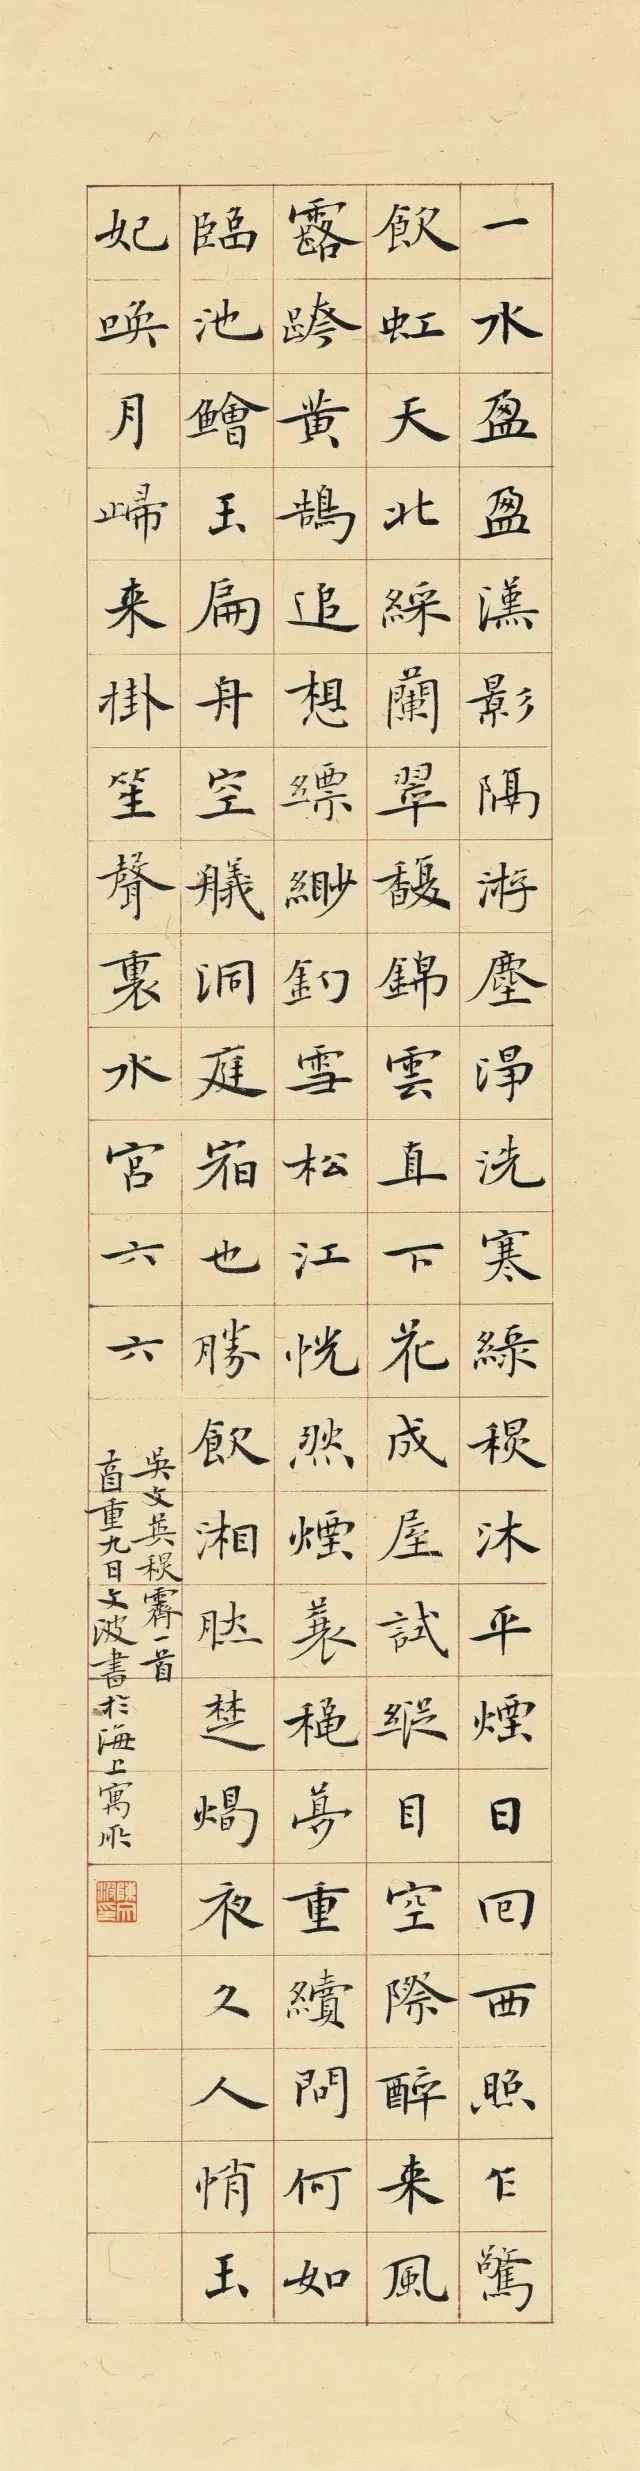 一水盈盈漢影隔游塵淨洗寒綠秋沐平煙日回西照乍驚
飲虹天北綵蘭翠馥錦雲直下花成屋試縱目空際醉來風
露跨黃鵠追想縹緲釣雪松江恍然煙蓑穐夢重續問何如
臨池鱠玉扁舟空艤洞庭宿也勝飲湘肰楚燭夜久人悄玉
妃喚月歸來掛笙聲裏水宮六六
吳文英秋霽一首
重九日文波書於海上寓所